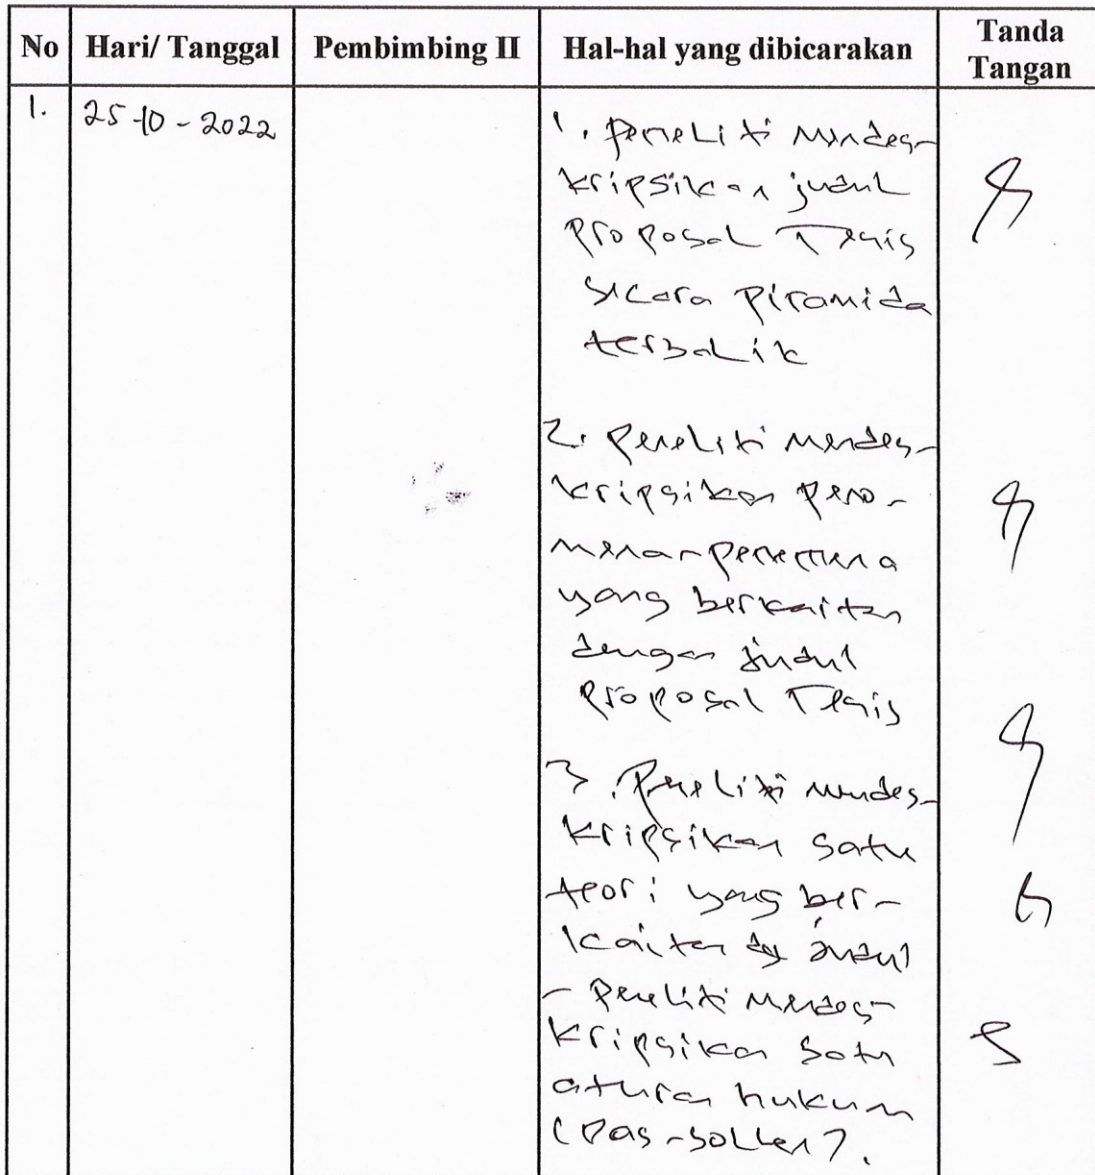 No Hari/ Tanggal Pembimbing II Hal-hal yang dibicarakan Tanda Tangan
1. 25-10-2022
1. Peneliti mendes-
kripsikan judul
proposal Tesis
secara piramida
terbalik
2. Peneliti mendes-
kripsikan peno-
mena-penemena
yang berkaitan
dengan judul
proposal Tesis
3. Peneliti mendes-
kripsikan satu
teori yang ber-
kaitan dg judul
- Peneliti mendes-
kripsikan satu
aturan hukum
(Das-sollen).